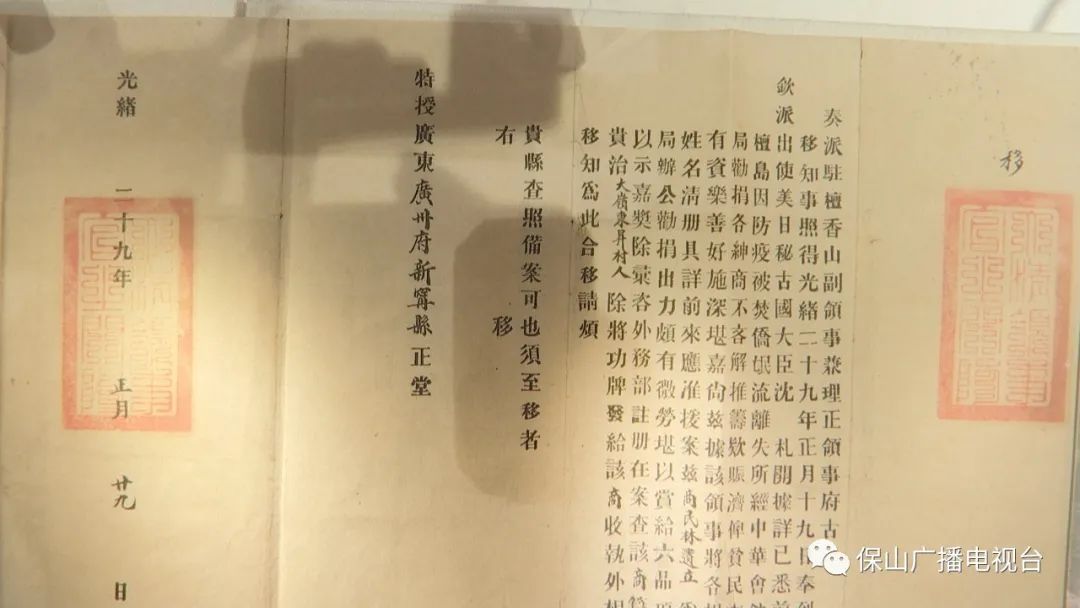 移
奏派駐檀香山副領事兼理正領事府古
移知事照得光緒二十九年正月十九日奉到
欽派出使美日秘古國大臣沈 札開據詳已悉前
檀島因防疫被焚僑氓流離失所經中華會館
局勸捐各紳商不吝解推籌欵賑濟俾貧民
有資樂善好施深堪嘉尙玆據該領事將各捐
姓名清册具詳前來應准援案玆商民林遺立
局辦公勸捐出力頗有微勞堪以賞給六品頂
以示嘉奬除彙咨外務部註册在案查該商籍
貴治大嶺東昇村人 除將功牌發給該商收執外相
移知爲此合移請煩
貴縣查照備案可也須至移者
右 移
特授廣東廣州府新寧縣正堂
光緒 二十九年 正月 廿九 日
保山广播电视台